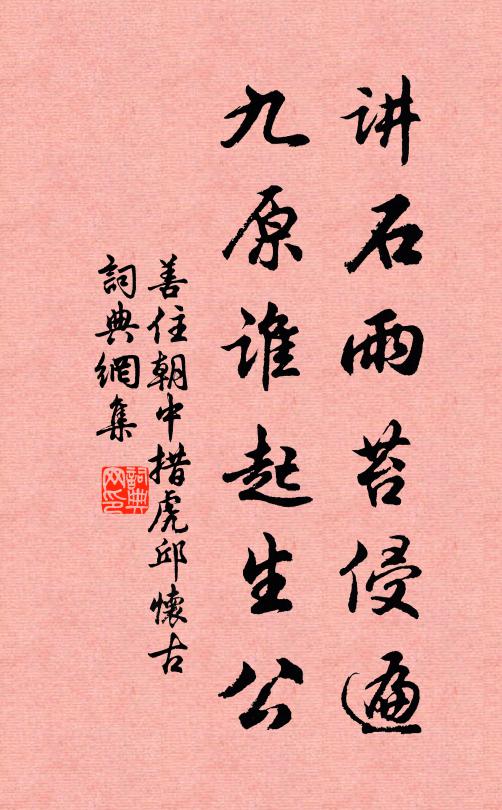 讲石雨苔侵遍
九原谁起生公
善住朝中措虎邱懷古
詞典網集
詞典网印